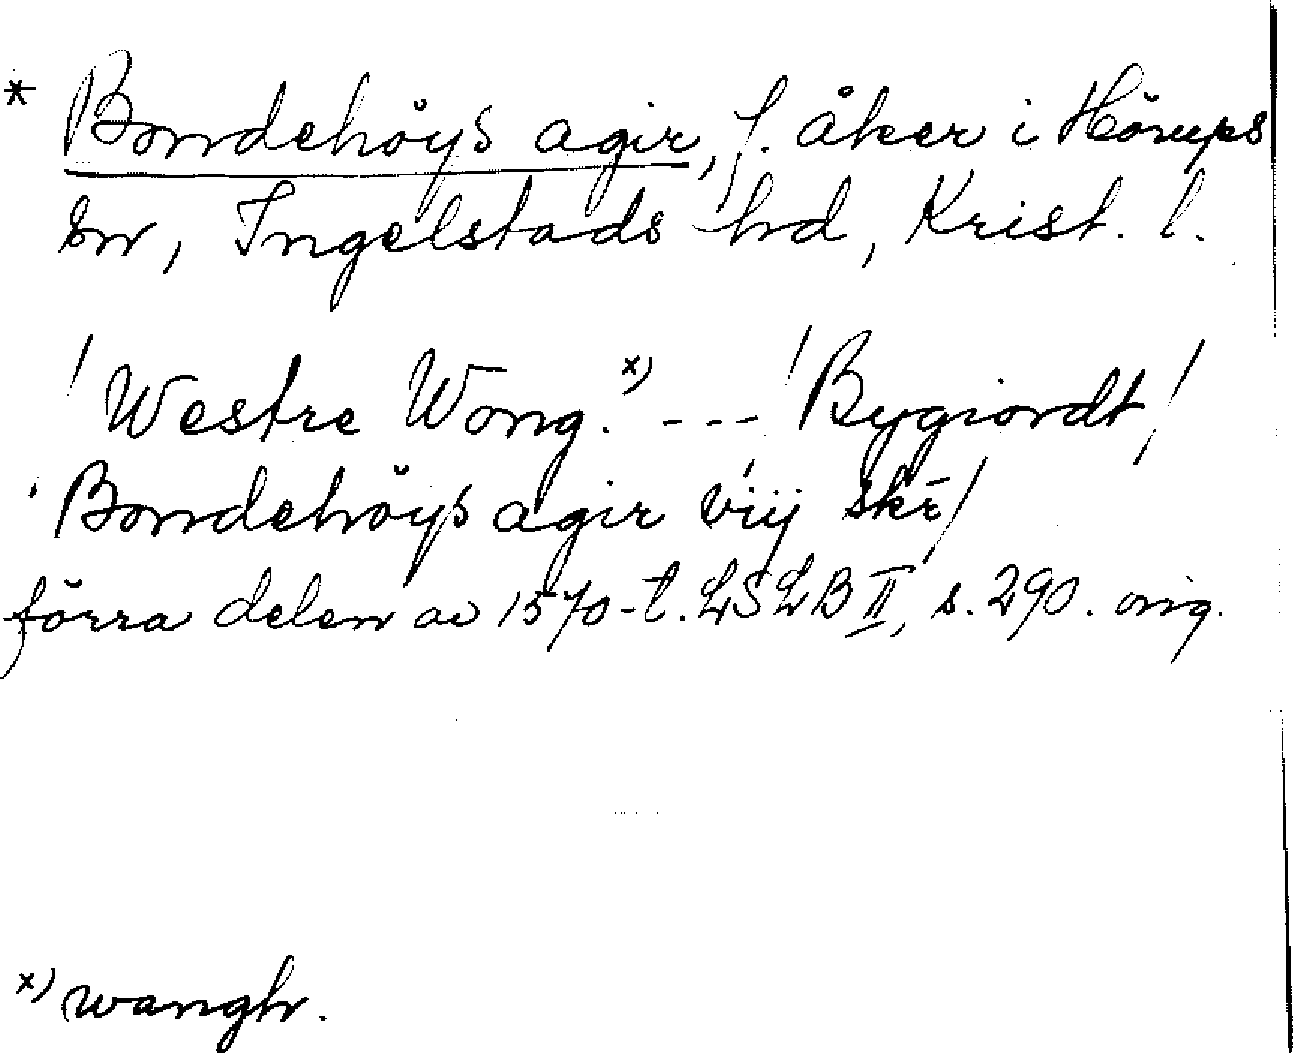 * Bondehöys agir, f. åker i Hörups
sn, Ingelstads hd, Krist. l.
/ Westre Wong.x) --- / Bygiordt /
Bondehöys agir viij skr̄ /
förra delen av 1570-t. LSLB II, s. 290. orig.
x) wangh.